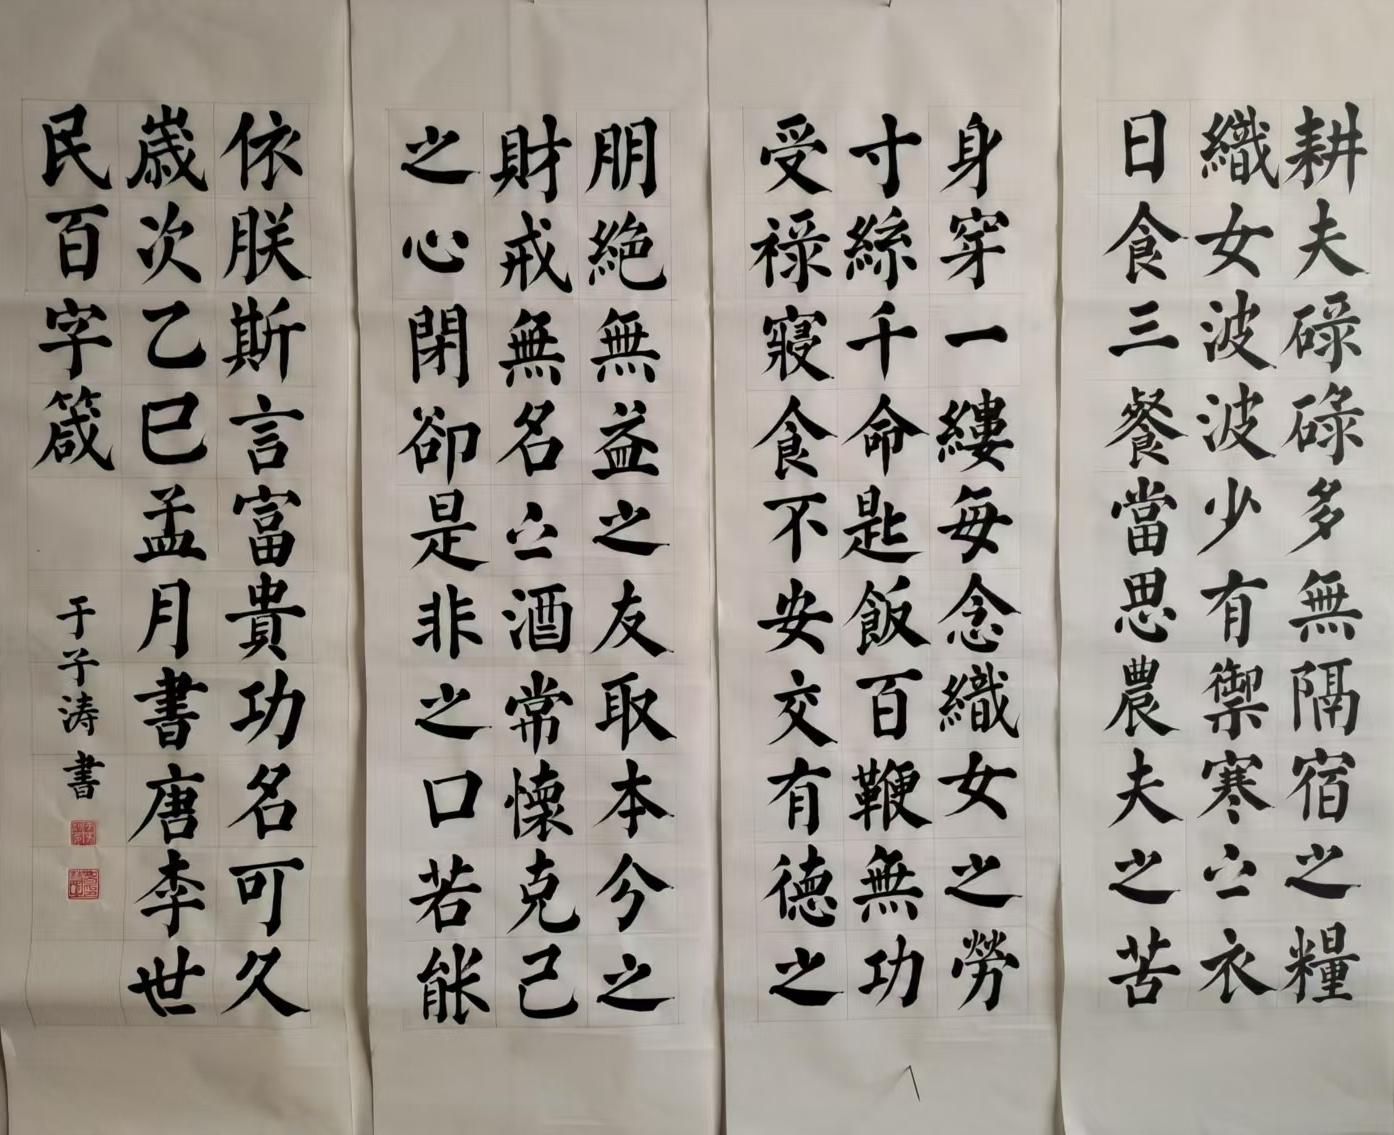 耕夫碌碌多無隔宿之糧
織女波波少有禦寒之衣
日食三餐當思農夫之苦
身穿一縷每念織女之勞
寸絲千命匙飯百鞭無功
受祿寢食不安交有德之
朋絕無益之友取本分之
財戒無名之酒常懷克己
之心閉卻是非之口若能
依朕斯言富貴功名可久
歲次乙巳孟月書唐李世
民百字箴
于子涛書